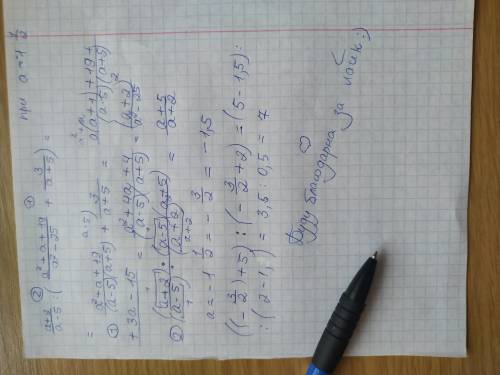 ② ①
\frac{a+2}{a-5} : (\frac{a^2+a+19}{a^2-25} + \frac{3}{a+5}) = при a = -1\frac{1}{2}
= 
① \frac{a^2-a+12}{(a-5)(a+5)} + \frac{3}{a+5} = \frac{a(a+1)+19+}{(a-5)(a+5)}
\frac{+3a-15}{} = \frac{a^2+4a+4}{(a-5)(a+5)} = \frac{(a+2)^2}{a^2-25}
② \frac{(a+2) \cdot (a-5)(a+5)}{(a-5) \cdot (a+2)^2} = \frac{a+5}{a+2}
a = -1\frac{1}{2} = -\frac{3}{2} = -1,5
((-\frac{3}{2})+5) : (-\frac{3}{2}+2) = (5-1,5) :
: (2-1, ) = 3,5 : 0,5 = 7
Буду благодарна за лайк :)